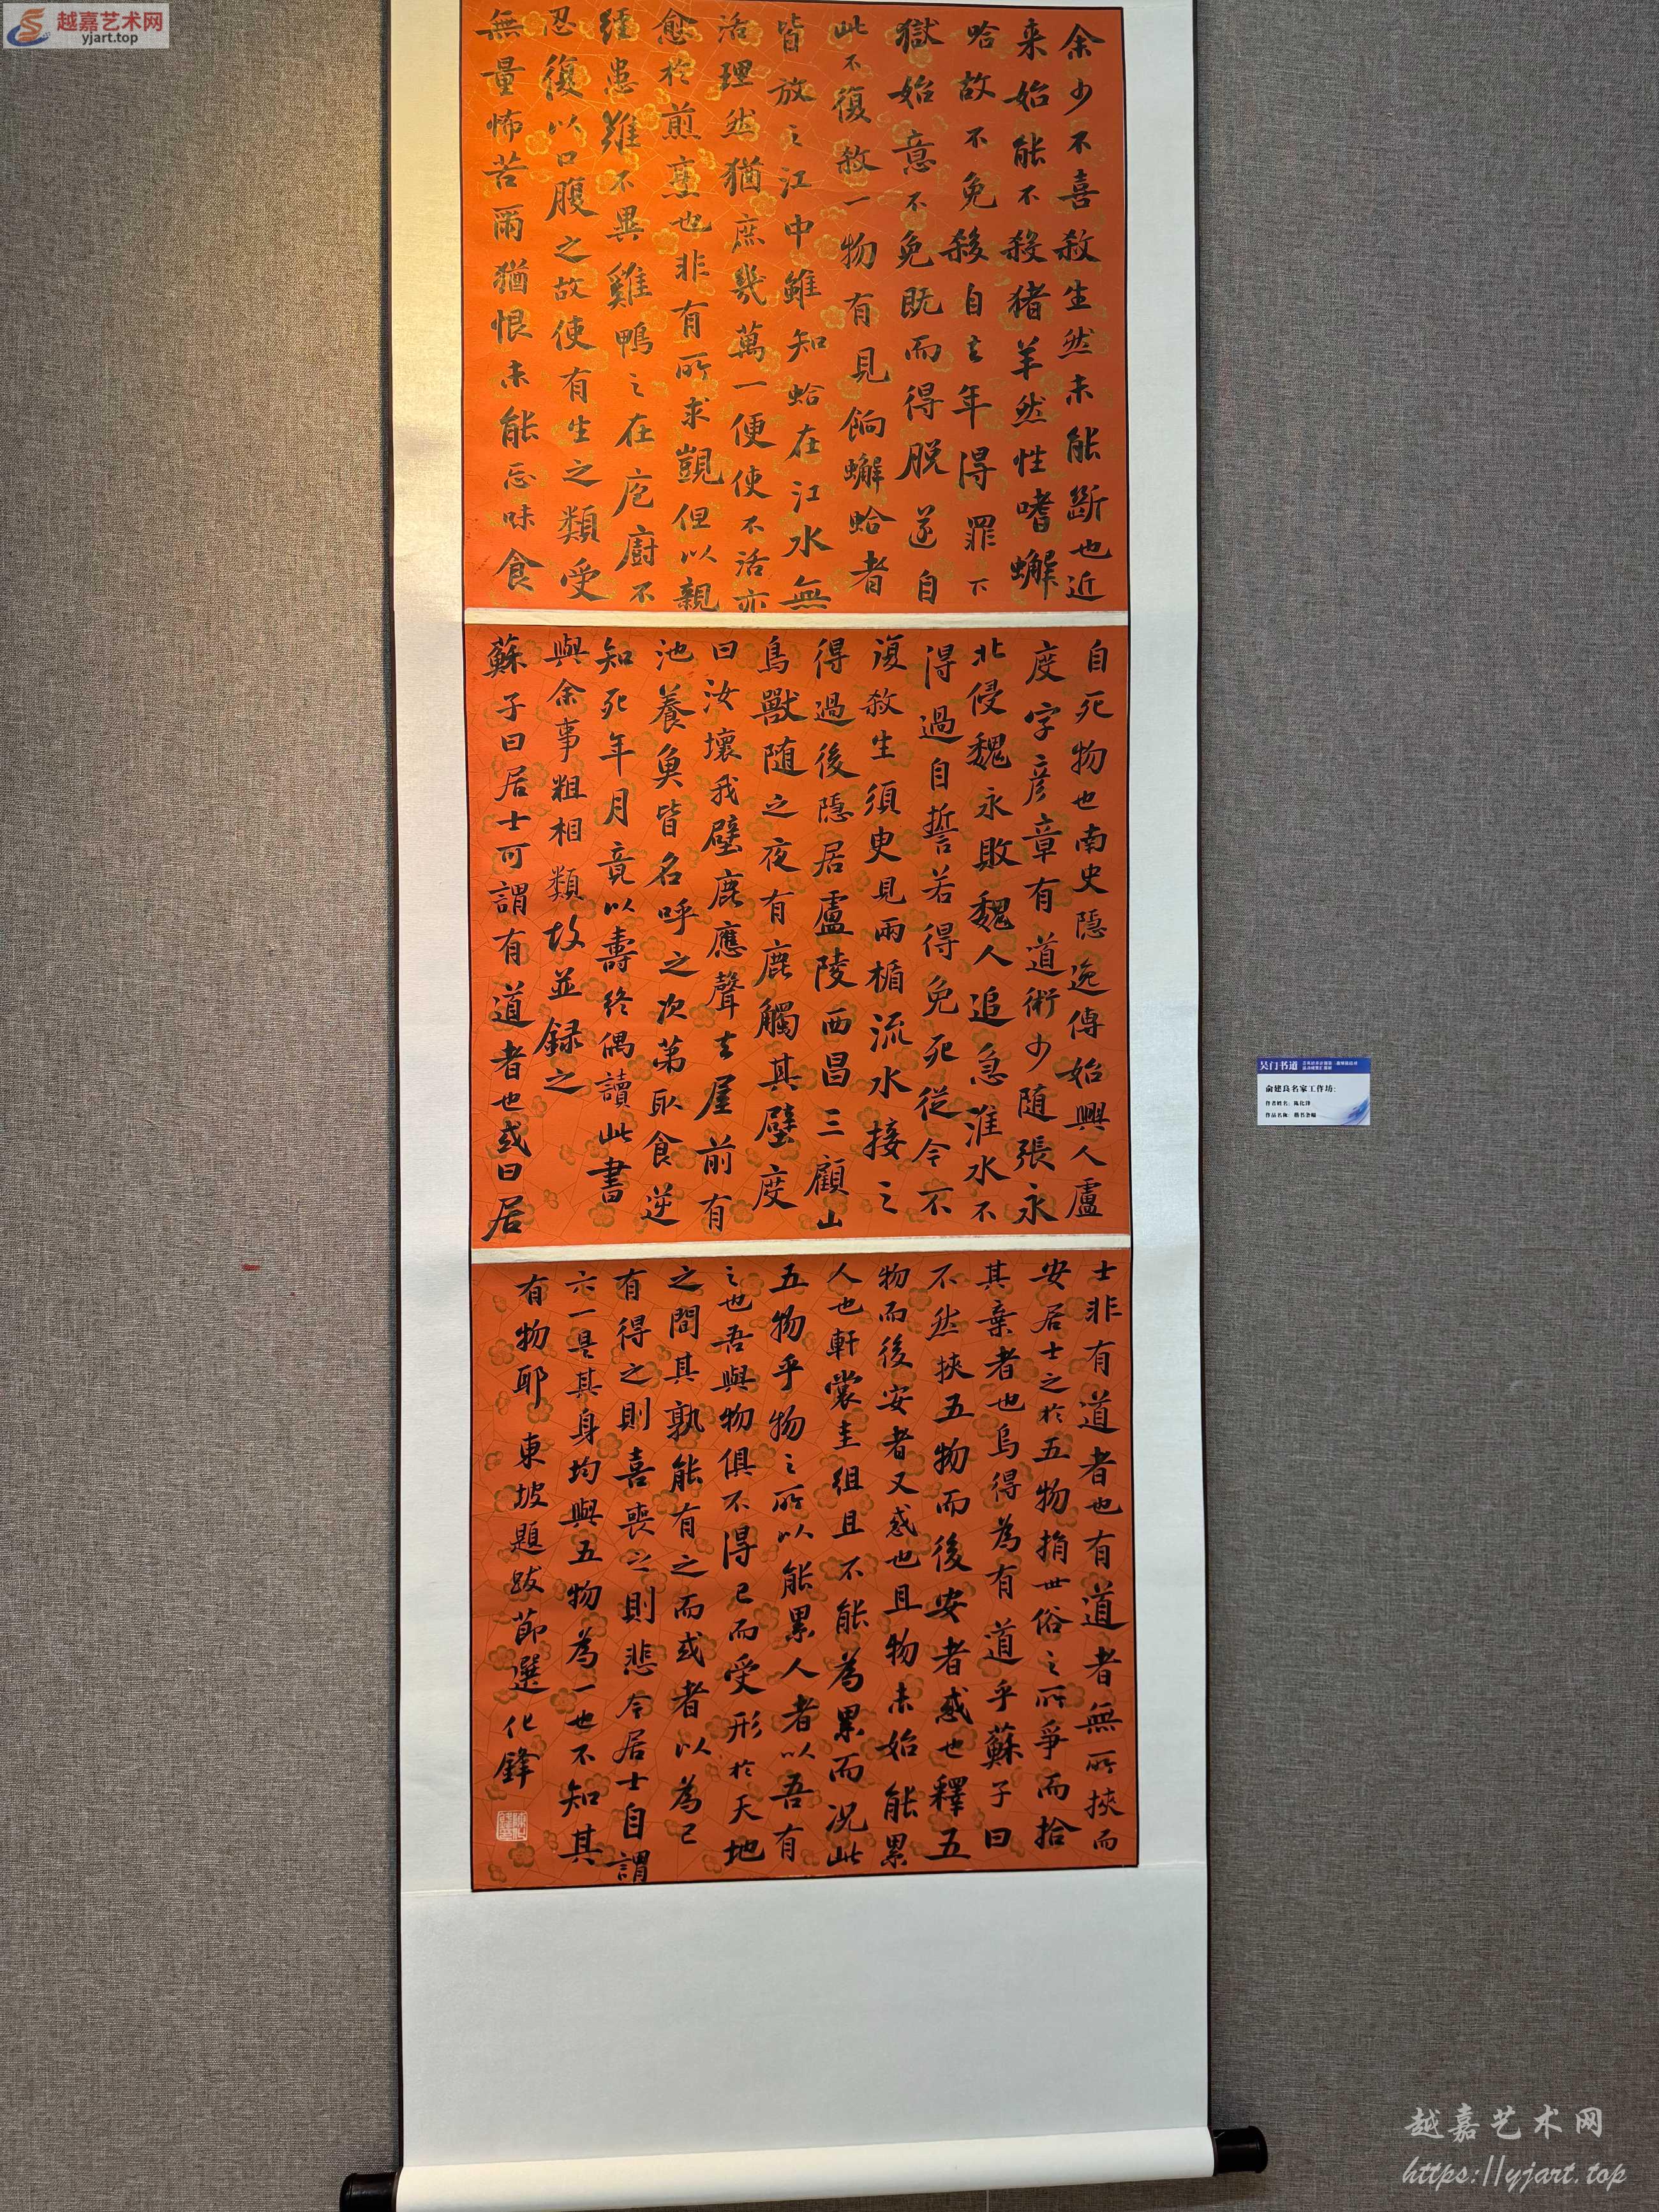 越嘉艺术网
yjart.top
余少不喜殺生然未能斷也近
来始能不殺猪羊然性嗜蠏
哈故不免殺自去年得罪下
獄始意不免既而得脱遂自
此不復殺一物有見餉蠏蛤者
皆放之江中雖知蛤在江水無
活理然猶庶幾萬一便使不活亦
愈於煎烹也非有所求覬但以親
經患難不異雞鴨之在庖廚不
忍復以口腹之故使有生之類受
無量怖苦爾猶恨未能忘味食
自死物也南史隱逸傳始興人盧
度字彦章有道術少随張永
北侵魏永敗魏人追急淮水不
得過自誓若得免死從今不
復殺生須臾見兩楯流水接之
得過後隱居盧陵西昌三顧山
鳥獸随之夜有鹿觸其壁度
曰汝壞我壁鹿應聲去屋前有
池養魚皆名呼之次第取食逆
知死年月竟以壽終偶讀此書
與余事粗相類故並録之
蘇子曰居士可謂有道者也或曰居
士非有道者也有道者無所挾而
安居士之於五物捐世俗之所爭而拾
其棄者也烏得為有道乎蘇子曰
不然挾五物而後安者惑也釋五
物而後安者又惑也且物未始能累
人也軒裳圭组且不能為累而况此
五物乎物之所以能累人者以吾有
之也吾與物俱不得已而受形於天地
之間其孰能有之而或者以為己
有得之則喜喪之則悲今居士自謂
六一是其身均與五物為一也不知其
有物耶 東坡題跋節選 化鋒
吴门书道
俞建良名家工作坊:
作者姓名: 陈化锋
作品名称: 楷书条幅
越嘉艺术网
https://yjart.top